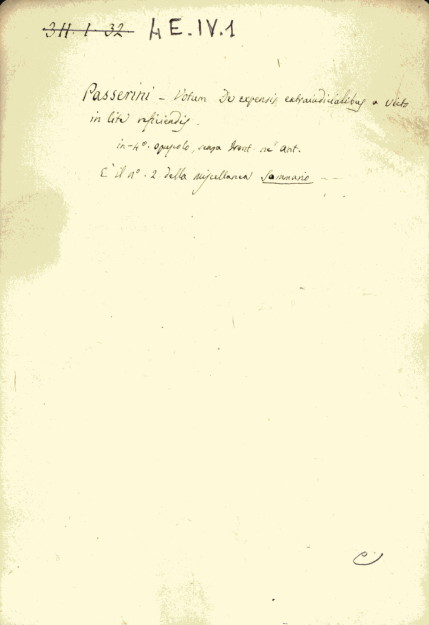 3H. I. 32 4 E.IV.1
Passerini - Votum De expensis extraiudicialibus a victo
in lite reficiendis.
in-4°. opuscolo, senza front. né ant.
È il n°. 2 della miscellanea Sommario